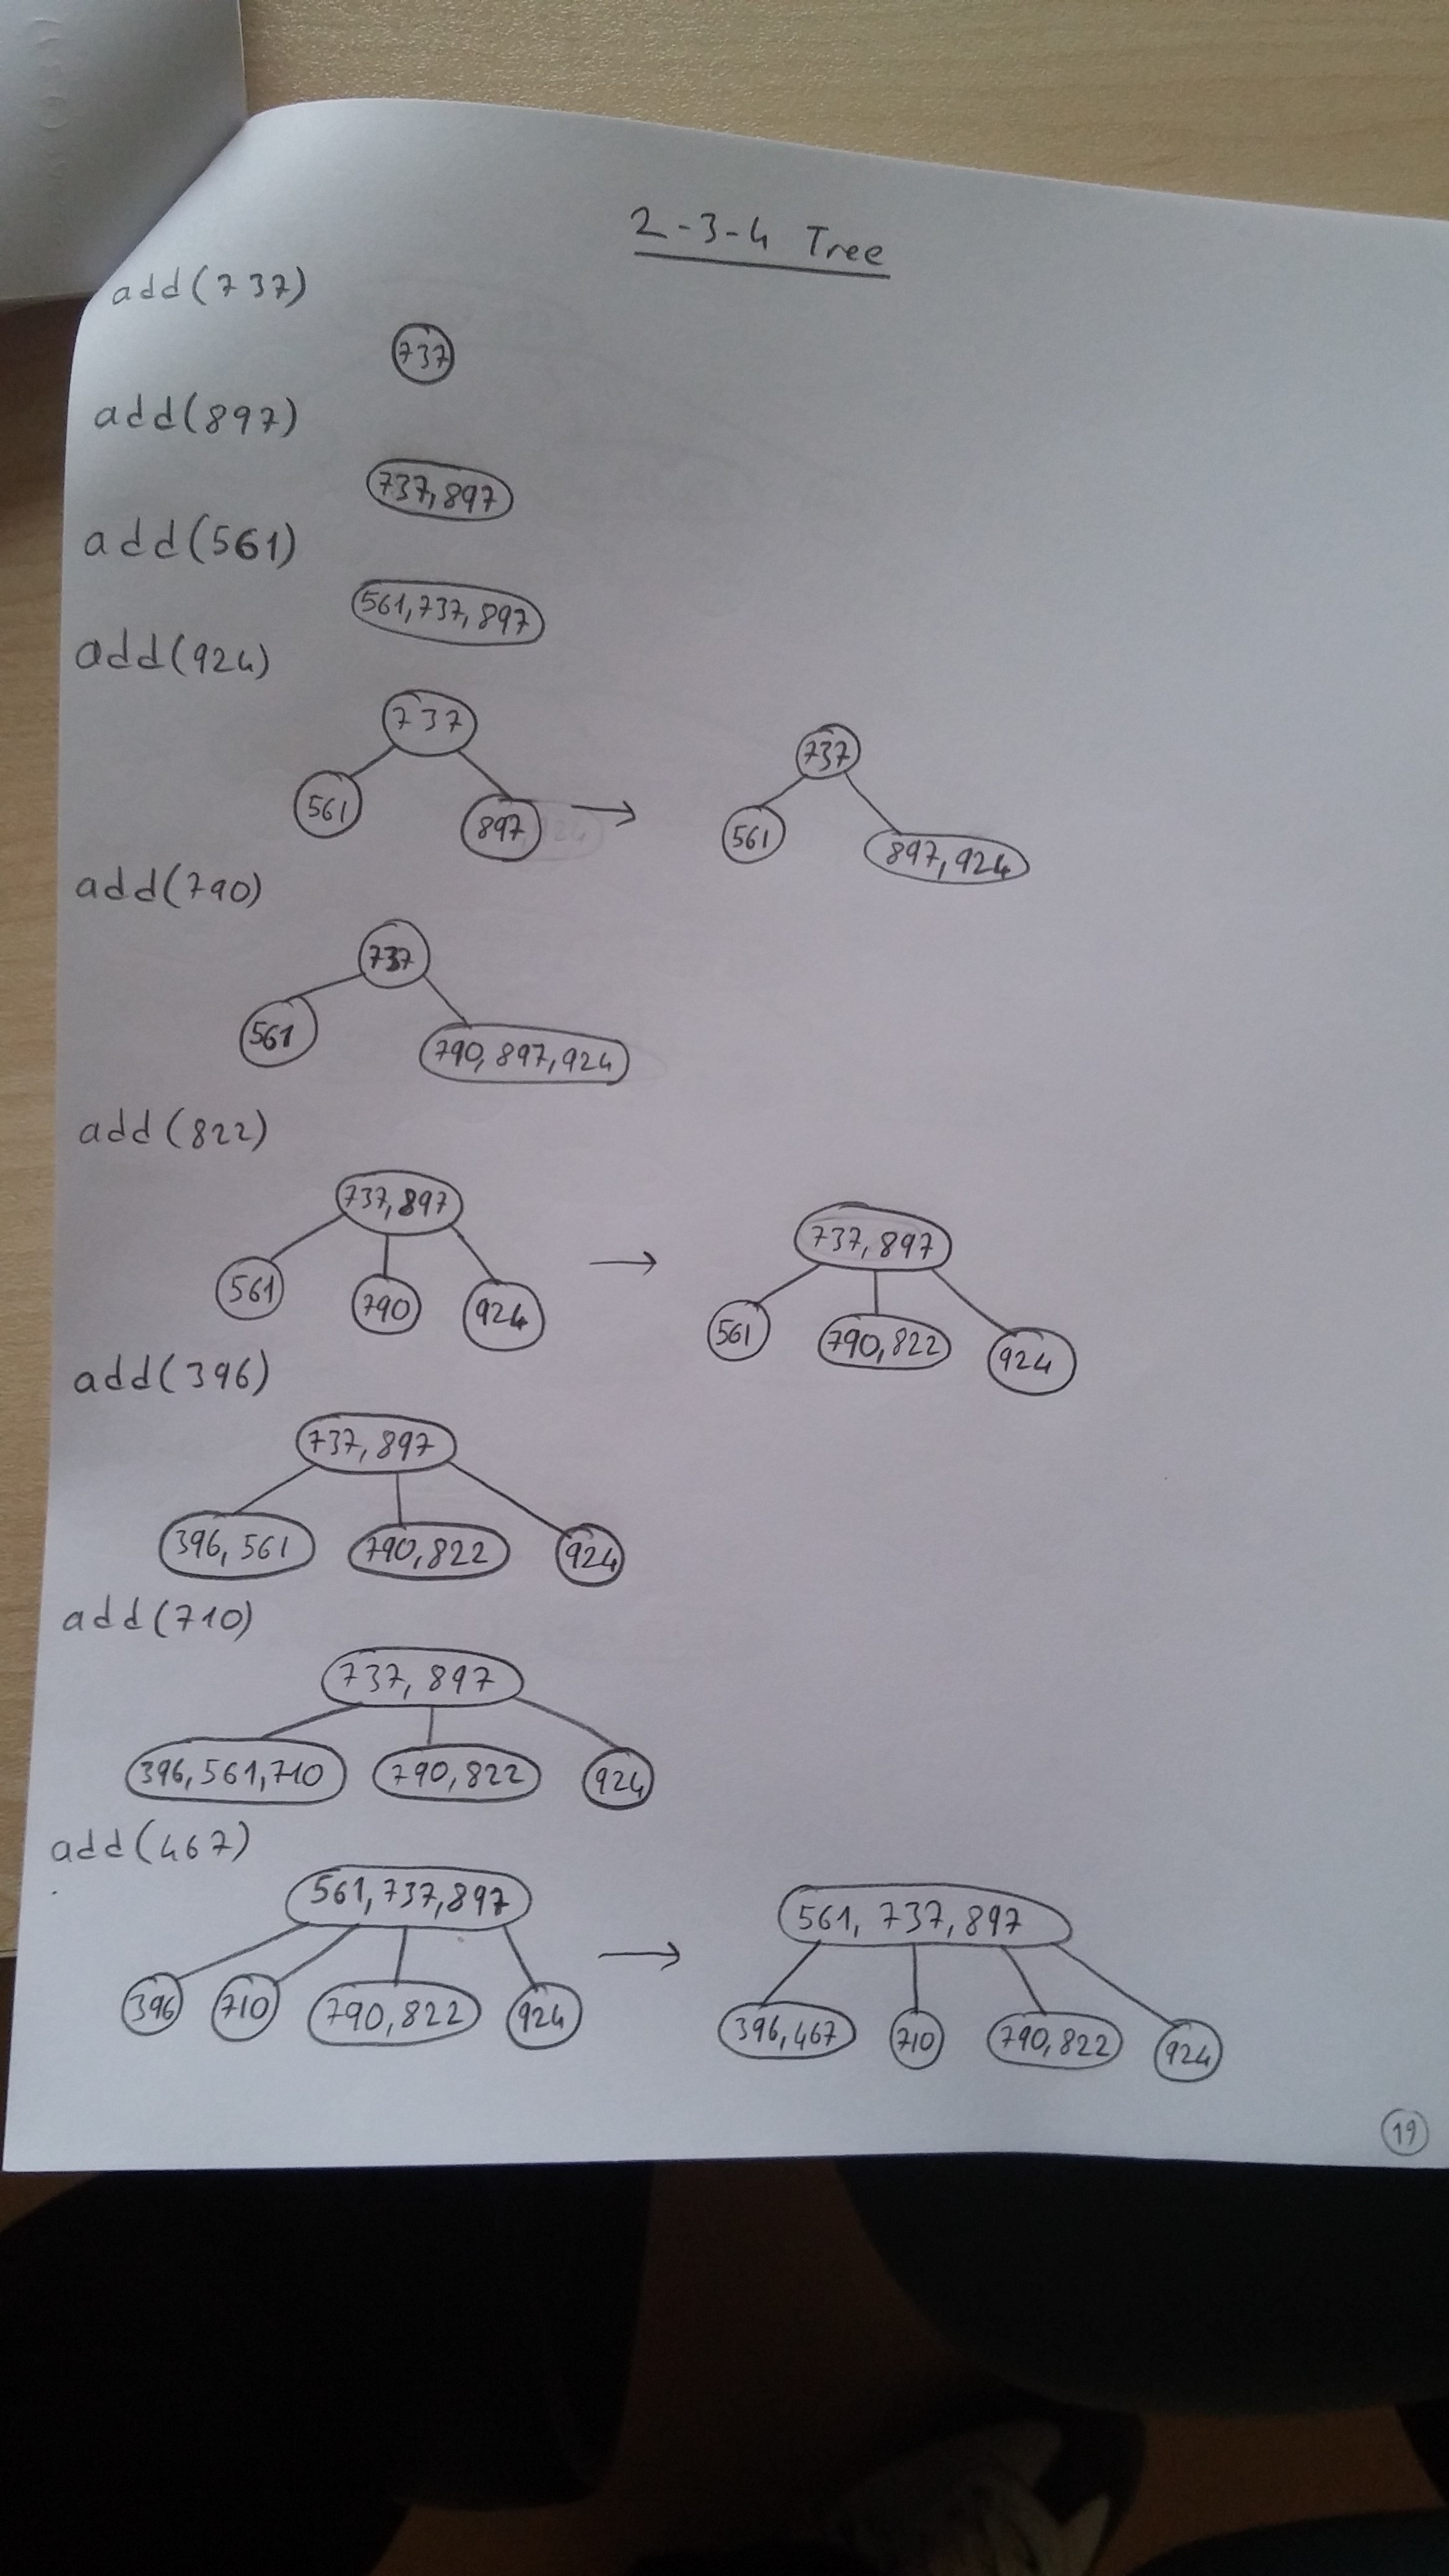 2-3-4 Tree
add(737)
737
add(897)
737, 897
add(561)
561, 737, 897
add(924)
737
561
897
→
737
561
897, 924
add(790)
737
561
790, 897, 924
add(822)
737, 897
561
790
924
→
737, 897
561
790, 822
924
add(396)
737, 897
396, 561
790, 822
924
add(710)
737, 897
396, 561, 710
790, 822
924
add(467)
561, 737, 897
396
710
790, 822
924
→
561, 737, 897
396, 467
710
790, 822
924
19